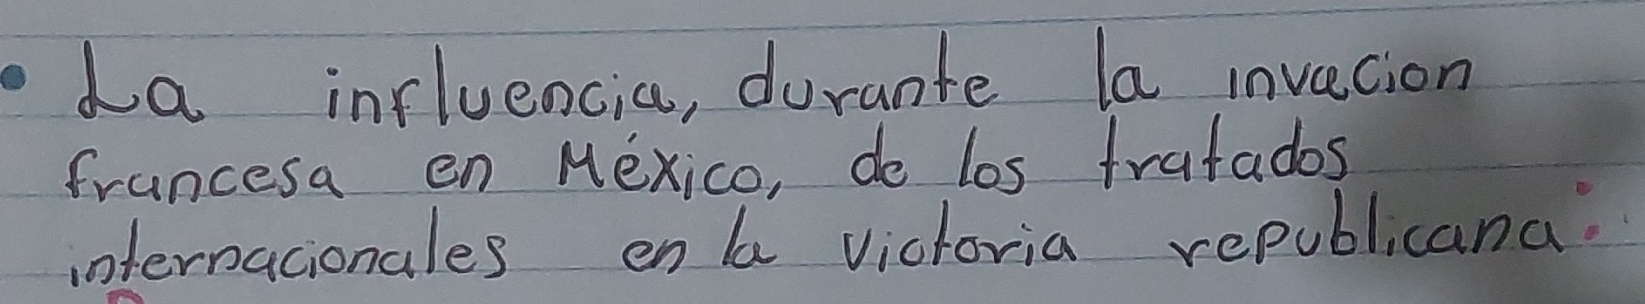 • La influencia, durante la invacion
francesa en México, de los tratados
internacionales en la victoria republicana.